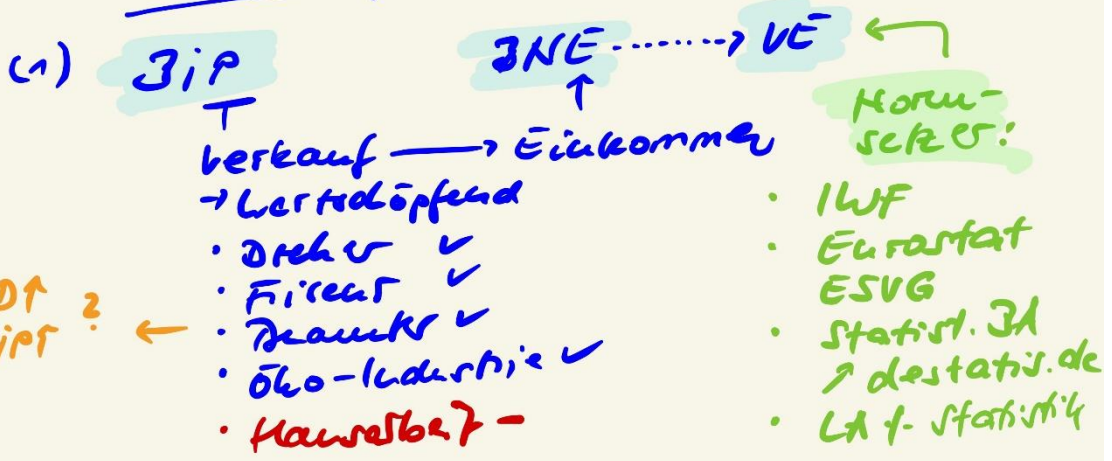 (1) BiP BNE ........> VE ←
Norm-
setzer:
Verkauf → Einkommen
→ Wertschöpfend
• Dreher ✓
• Friseur ✓
• Beamter ✓
• Öko-Industrie ✓
• Hausarbeit –
?
←
• IWF
• Eurostat
ESVG
• Statist. BA
↗ destatis.de
• LA f. Statistik